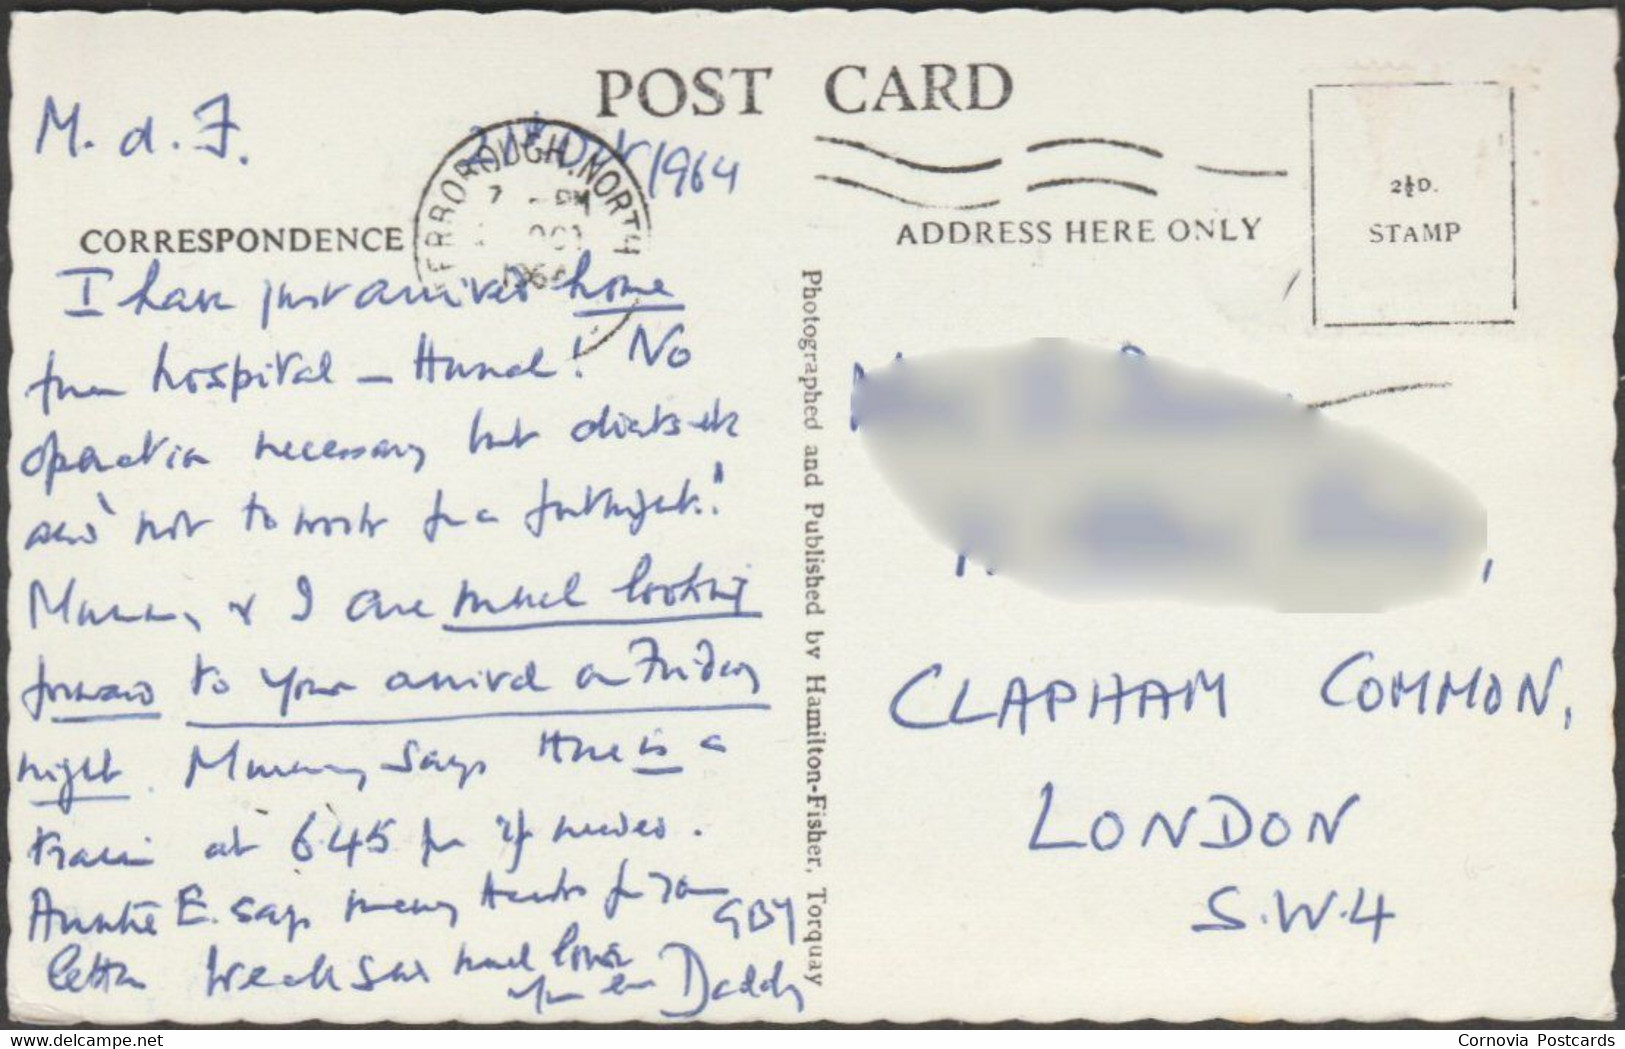 POST CARD
M. d. F.
21st Oct 1964
ERBOROUGH. NORTH
7 - PM
OCT
1964
CORRESPONDENCE
ADDRESS HERE ONLY
2½D.
STAMP
I have just arrived home
from hospital – Hurrah! No
operation necessary but
and not to work for a fortnight!
Mummy & I are much looking
forward to your arrival on Friday
night. Mummy says there is a
train at 6.45 pm if needed.
Auntie E. says many thanks for your
letter. We all send much love
GBY
Daddy
Photographed and Published by Hamilton-Fisher, Torquay
CLAPHAM COMMON,
LONDON
S.W.4
Cornovia Postcards
www.delcampe.net